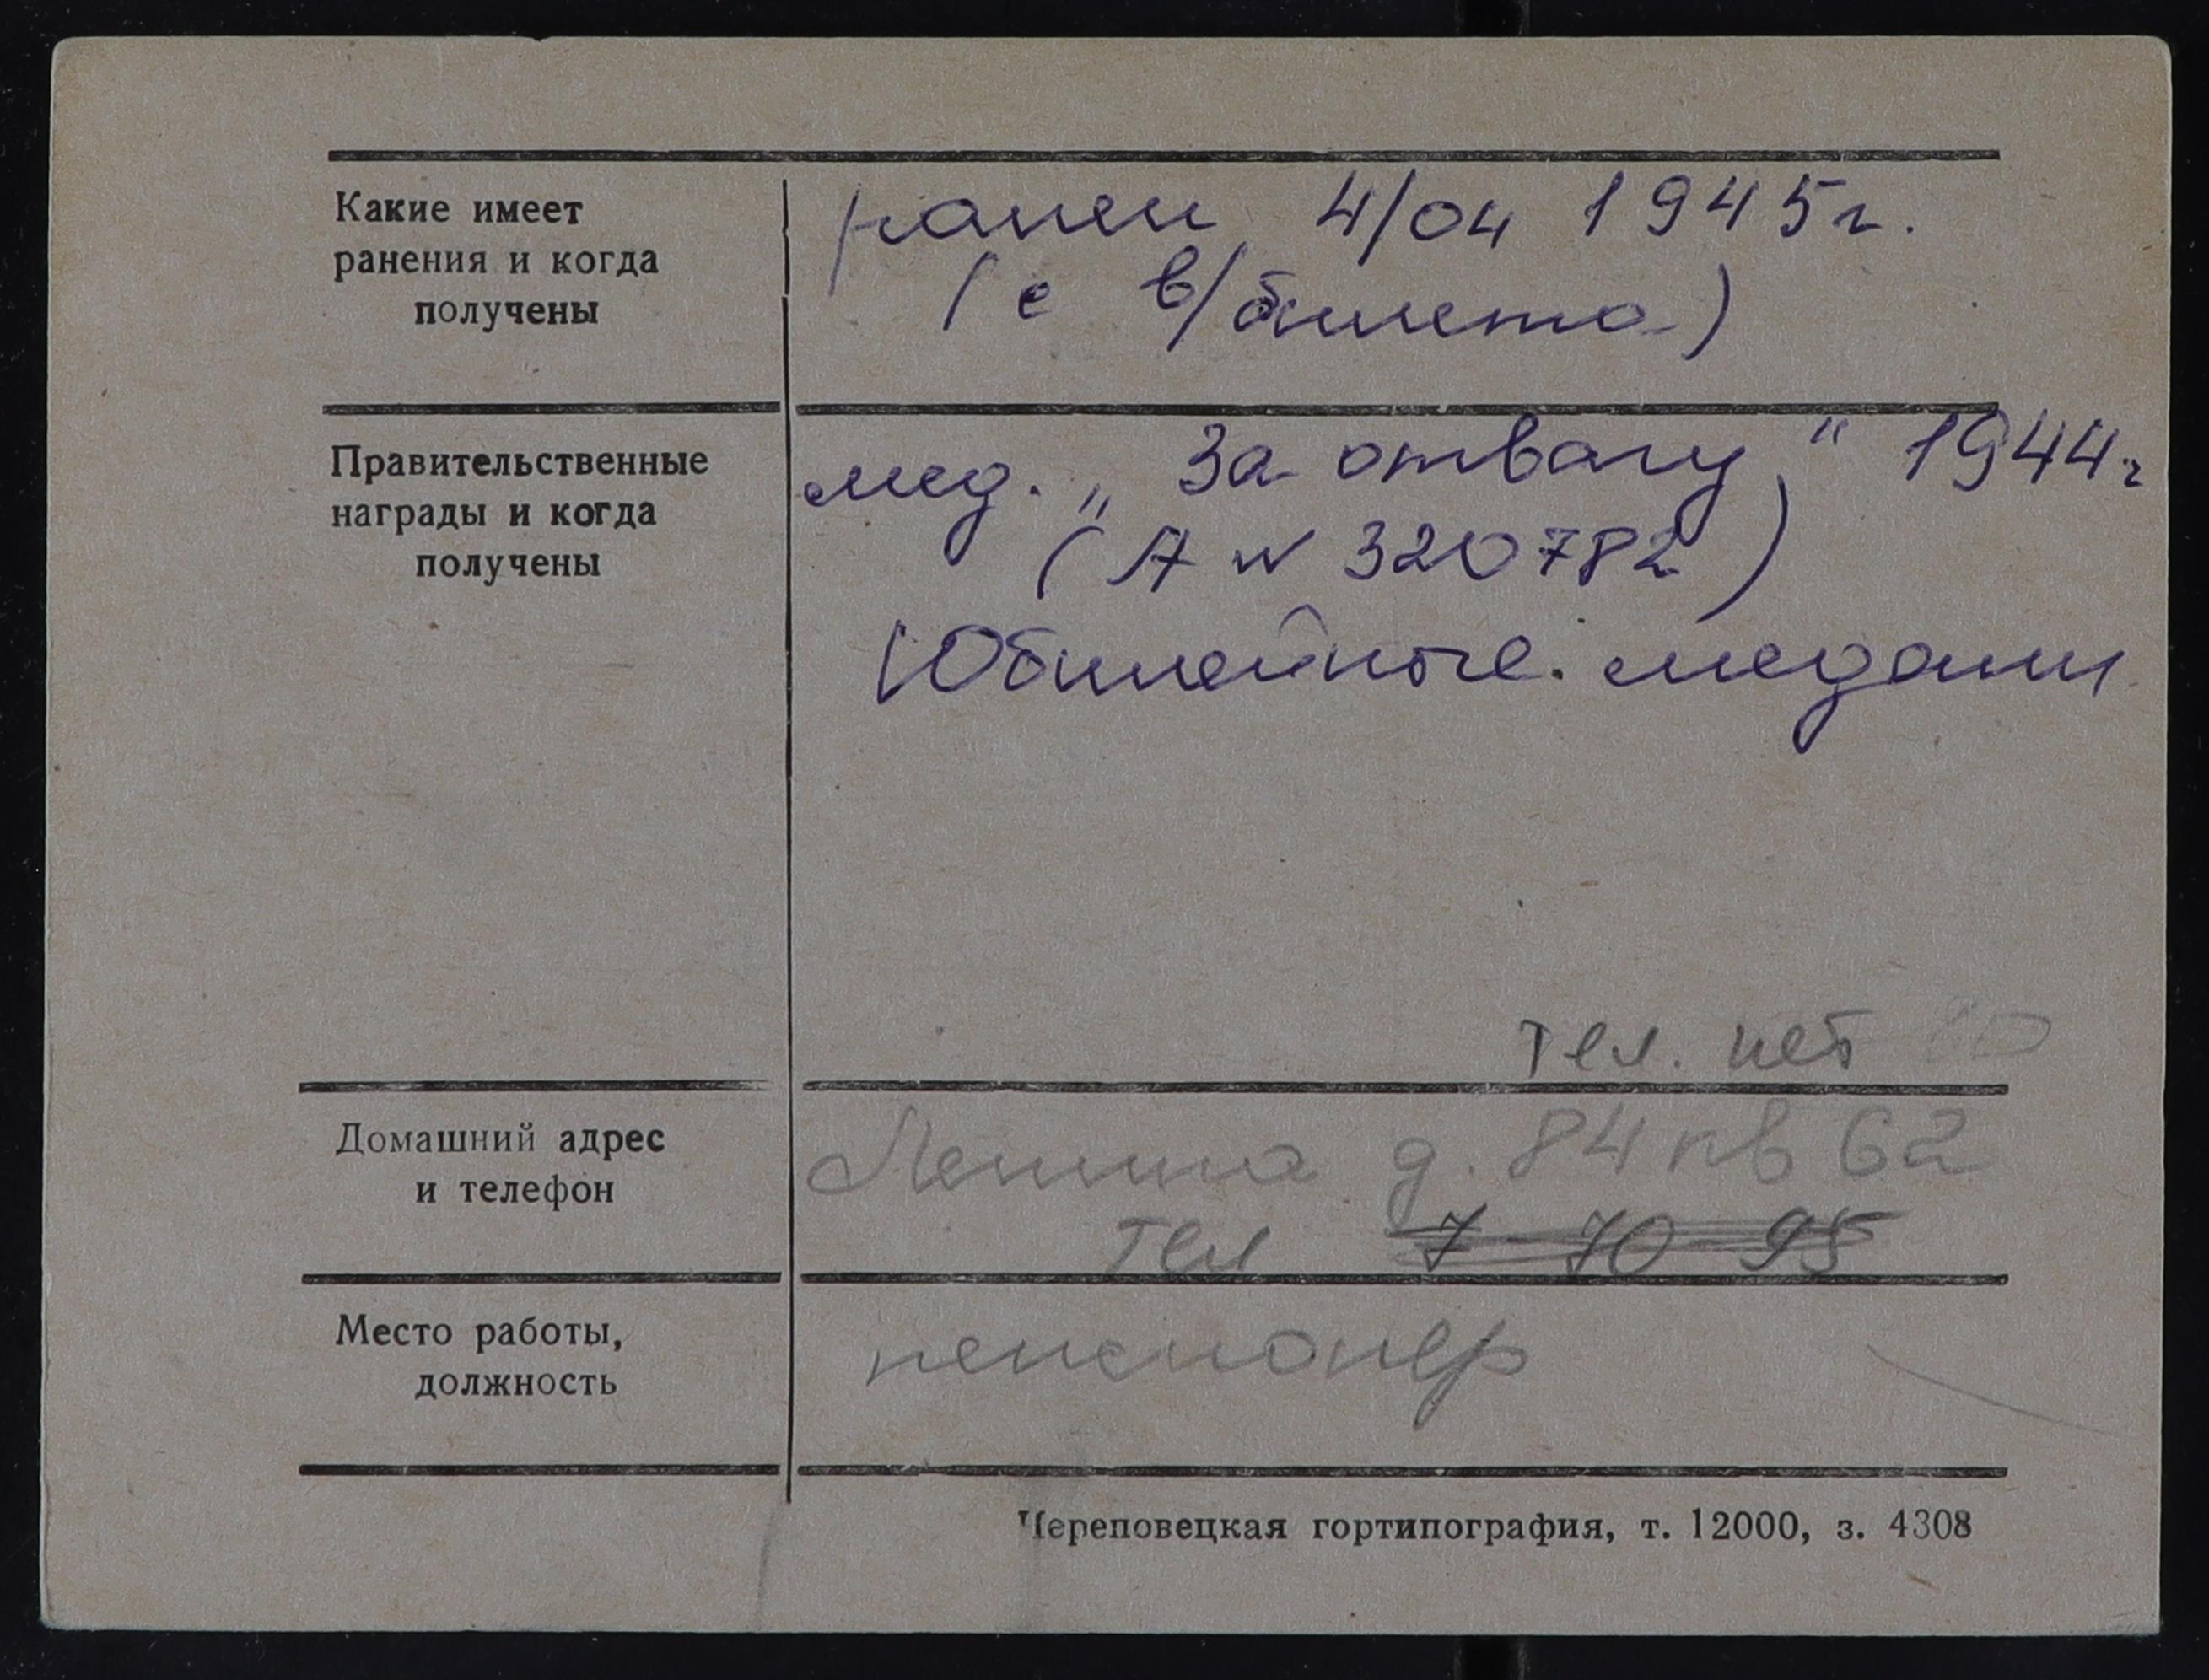 Какие имеет
ранения и когда
получены
ранен 4/04 1945г.
(с в/билета)
Правительственные
награды и когда
получены
мед. „За отвагу" 1944г
(А № 320782)
Юбилейные медали
тел. нет
Домашний адрес
и телефон
Ленина д. 84 кв 62
тел 7-70-95
Место работы,
должность
пенсионер
Череповецкая гортипография, т. 12000, з. 4308